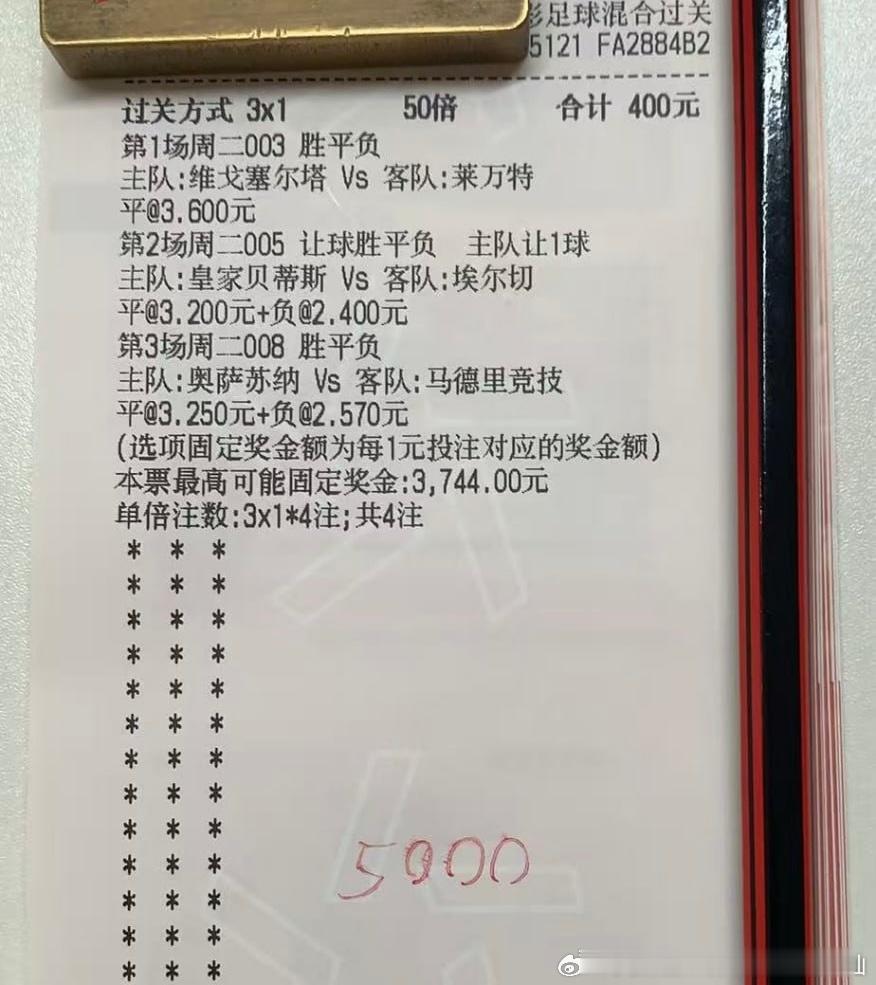 足球混合过关
5121 FA2884B2
过关方式 3x1 50倍 合计 400元
第1场周二003 胜平负
主队:维戈塞尔塔 Vs 客队:莱万特
平@3.600元
第2场周二005 让球胜平负 主队让1球
主队:皇家贝蒂斯 Vs 客队:埃尔切
平@3.200元+负@2.400元
第3场周二008 胜平负
主队:奥萨苏纳 Vs 客队:马德里竞技
平@3.250元+负@2.570元
(选项固定奖金额为每1元投注对应的奖金额)
本票最高可能固定奖金:3,744.00元
单倍注数:3x1*4注;共4注
* * *
* * *
* * *
* * *
* * *
* * *
* * *
* * *
* * *
* * *
* * *
* * *
* * *
5000